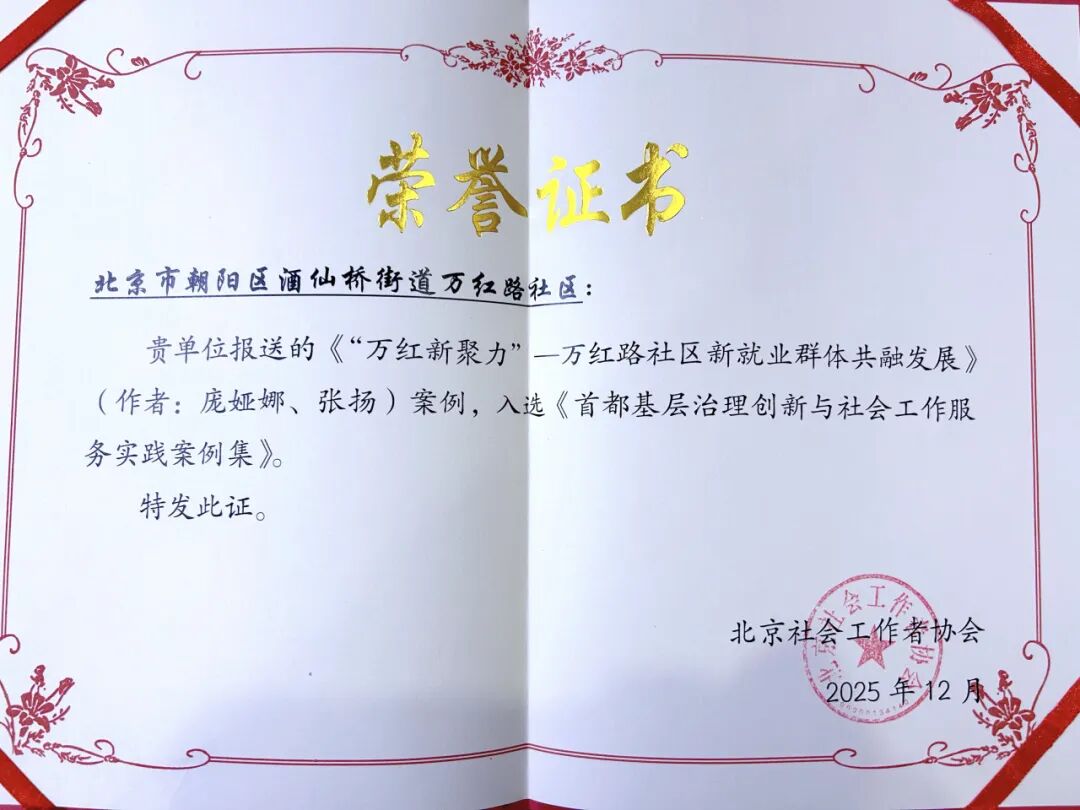 荣誉证书
北京市朝阳区酒仙桥街道万红路社区：
贵单位报送的《“万红新聚力”—万红路社区新就业群体共融发展》
（作者：庞娅娜、张扬）案例，入选《首都基层治理创新与社会工作服
务实践案例集》。
特发此证。
北京社会工作者协会
2025 年 12 月
北京社会工作者协会